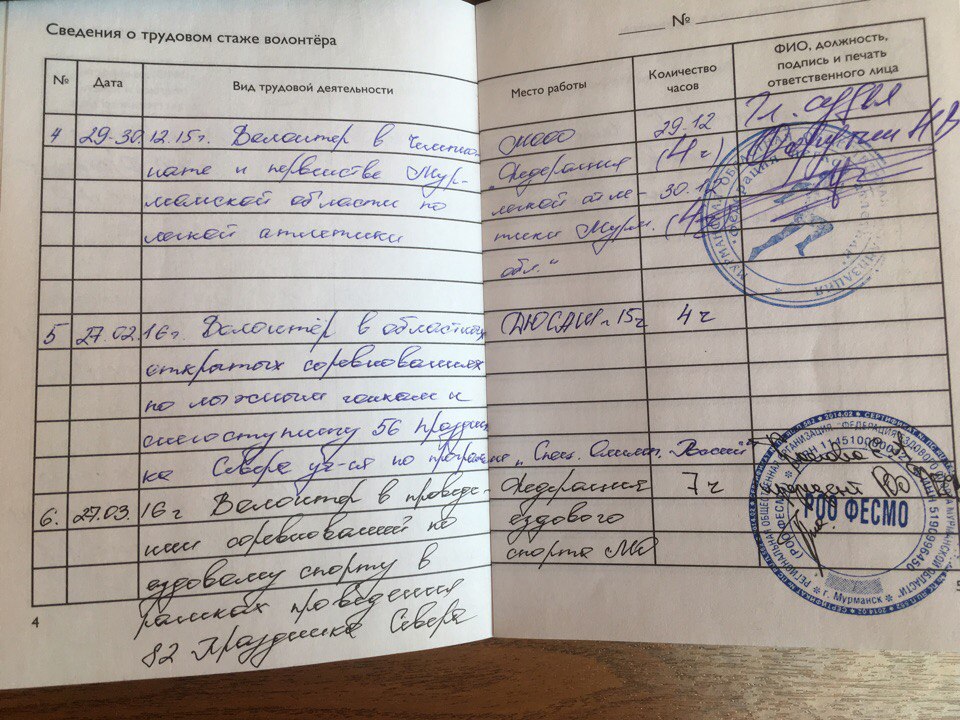 Сведения о трудовом стаже волонтёра
№
№ Дата Вид трудовой деятельности Место работы Количество часов ФИО, должность, подпись и печать ответственного лица
4 29-30.12.15г. Волонтер в Чемпио-
нате и первенстве Мур-
манской области по
легкой атлетики
"Федерация
легкой атле
тики Мурм.
обл."
29.12
(4 ч)
30.12
(4ч)
Гл. судья
5 27.02.16г. Волонтёр в областных
открытых соревнованиях
по лыжным гонкам и
снегоступингу 56 Праздни
ка Севера уч-ся по программе "Спец. Олимп. России"
ДЮСАШ №15 4 ч
6. 27.03.16г Волонтер в проведе-
нии соревнований по
ездовому спорту в
рамках проведения
82 Праздника Севера
Федерация
ездового
спорта МО
7 ч
РОО ФЕСМО
г. Мурманск
4